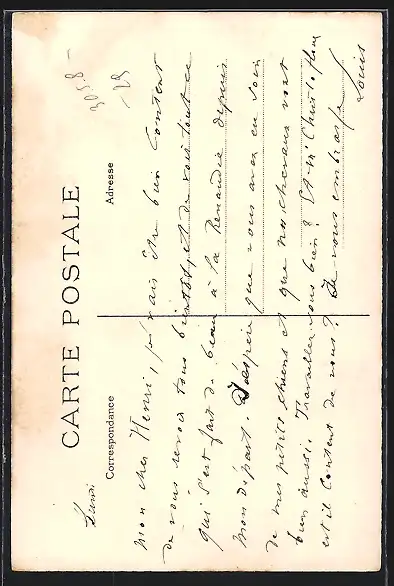 3058 -
- 25
CARTE POSTALE
Correspondance
Adresse
Lundi
Mon cher Henri, je vais être bien content
de vous revoir tous bientôt, et de voir tout ce
qui s'est fait de beau à la Renaudie depuis
mon départ. J'espère que vous avez eu soin
de mes petits chiens et que nos chevaux vont
bien aussi. Travaillez vous bien? Et Mr Christofleau
est il content de vous? Je vous embrasse
Louis